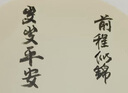 前程似錦
岁岁平安